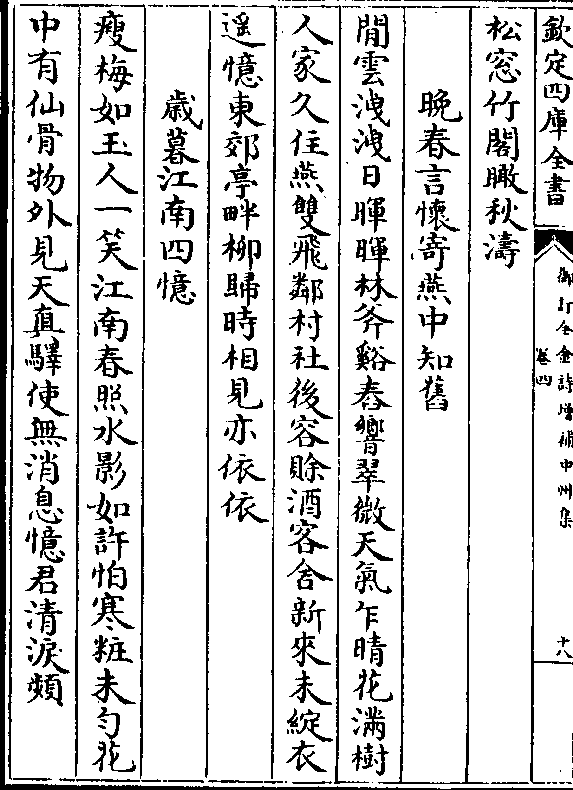 欽定四庫全書
御訂全金詩增補中州集
卷四
十八
松窓竹閣瞰秋濤
晚春言懷寄燕中知舊
閒雲洩洩日暉暉林斧谿舂響翠微天氣乍晴花滿樹
人家久住燕雙飛鄰村社後容賒酒客舍新來未綻衣
遥憶東郊亭畔柳歸時相見亦依依
歲暮江南四憶
瘦梅如玉人一笑江南春照水影如許怕寒粧未勻花
中有仙骨物外見天真驛使無消息憶君清淚頻